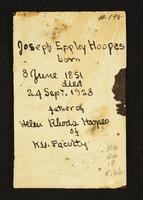 Joseph Eppley Hoopes
born
8 June 1851
died
24 Sept. 1923
father of
Helen Rhoda Hoopes
of
K.U. Faculty
RH
PH
18